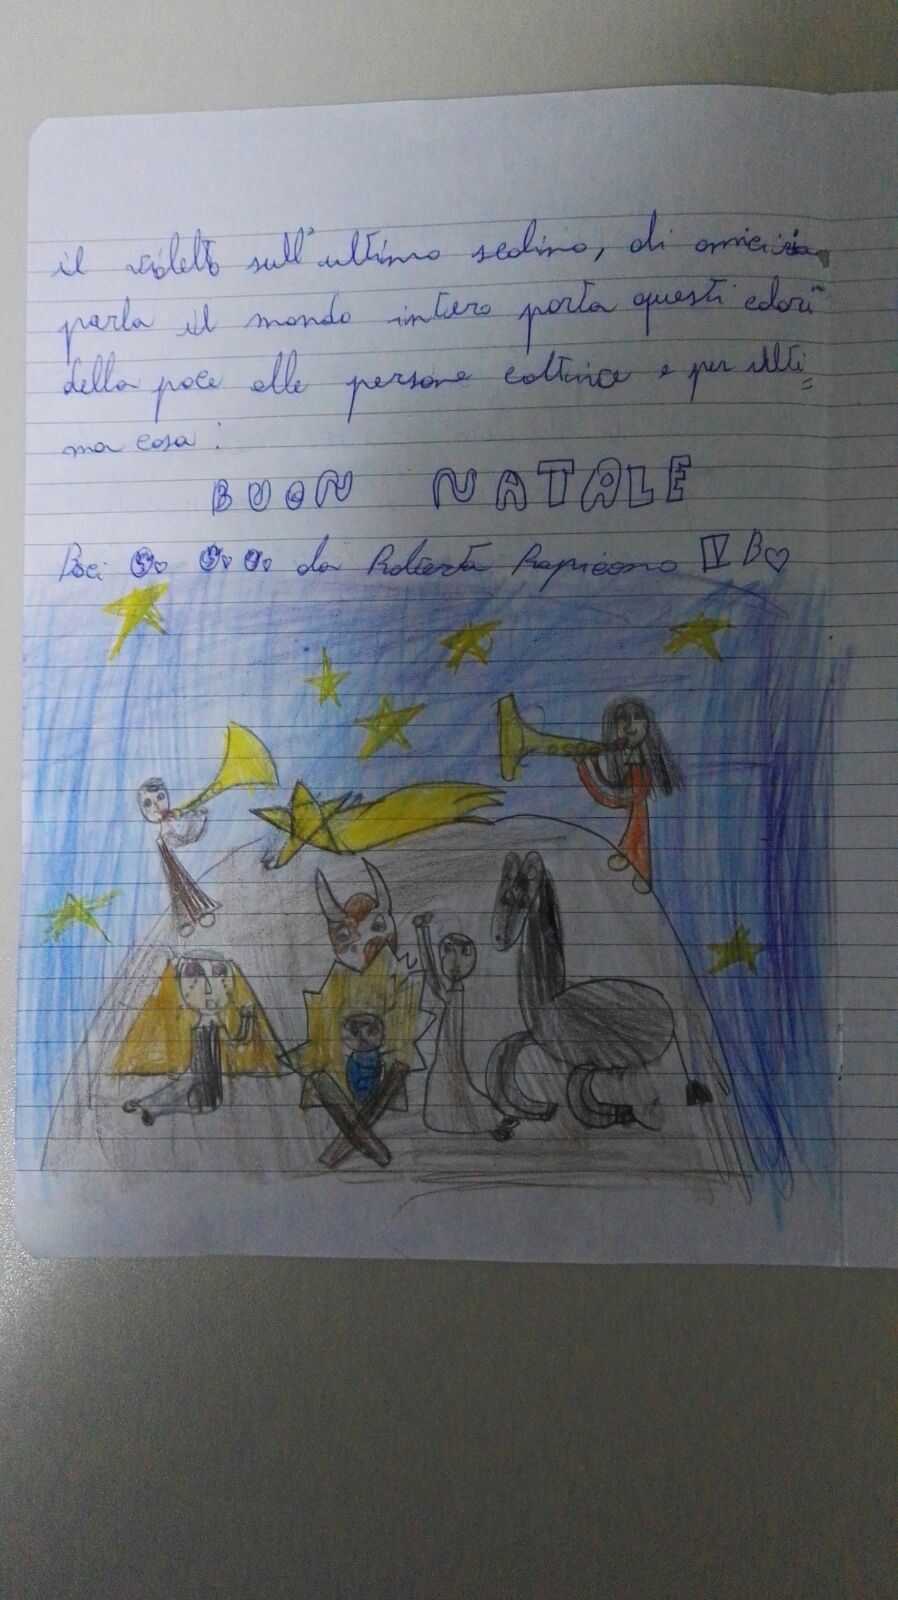 il violetto sull'ultimo sedino, di amicizia
parla il mondo intero porta questi colori
della pace alle persone cattive e per ulti=
ma cosa:
BUON NATALE
Baci da Roberta IV B